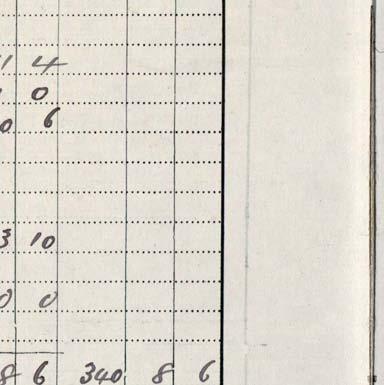 1 4
0
0 6
3 10
0 0
8 6 340 8 6